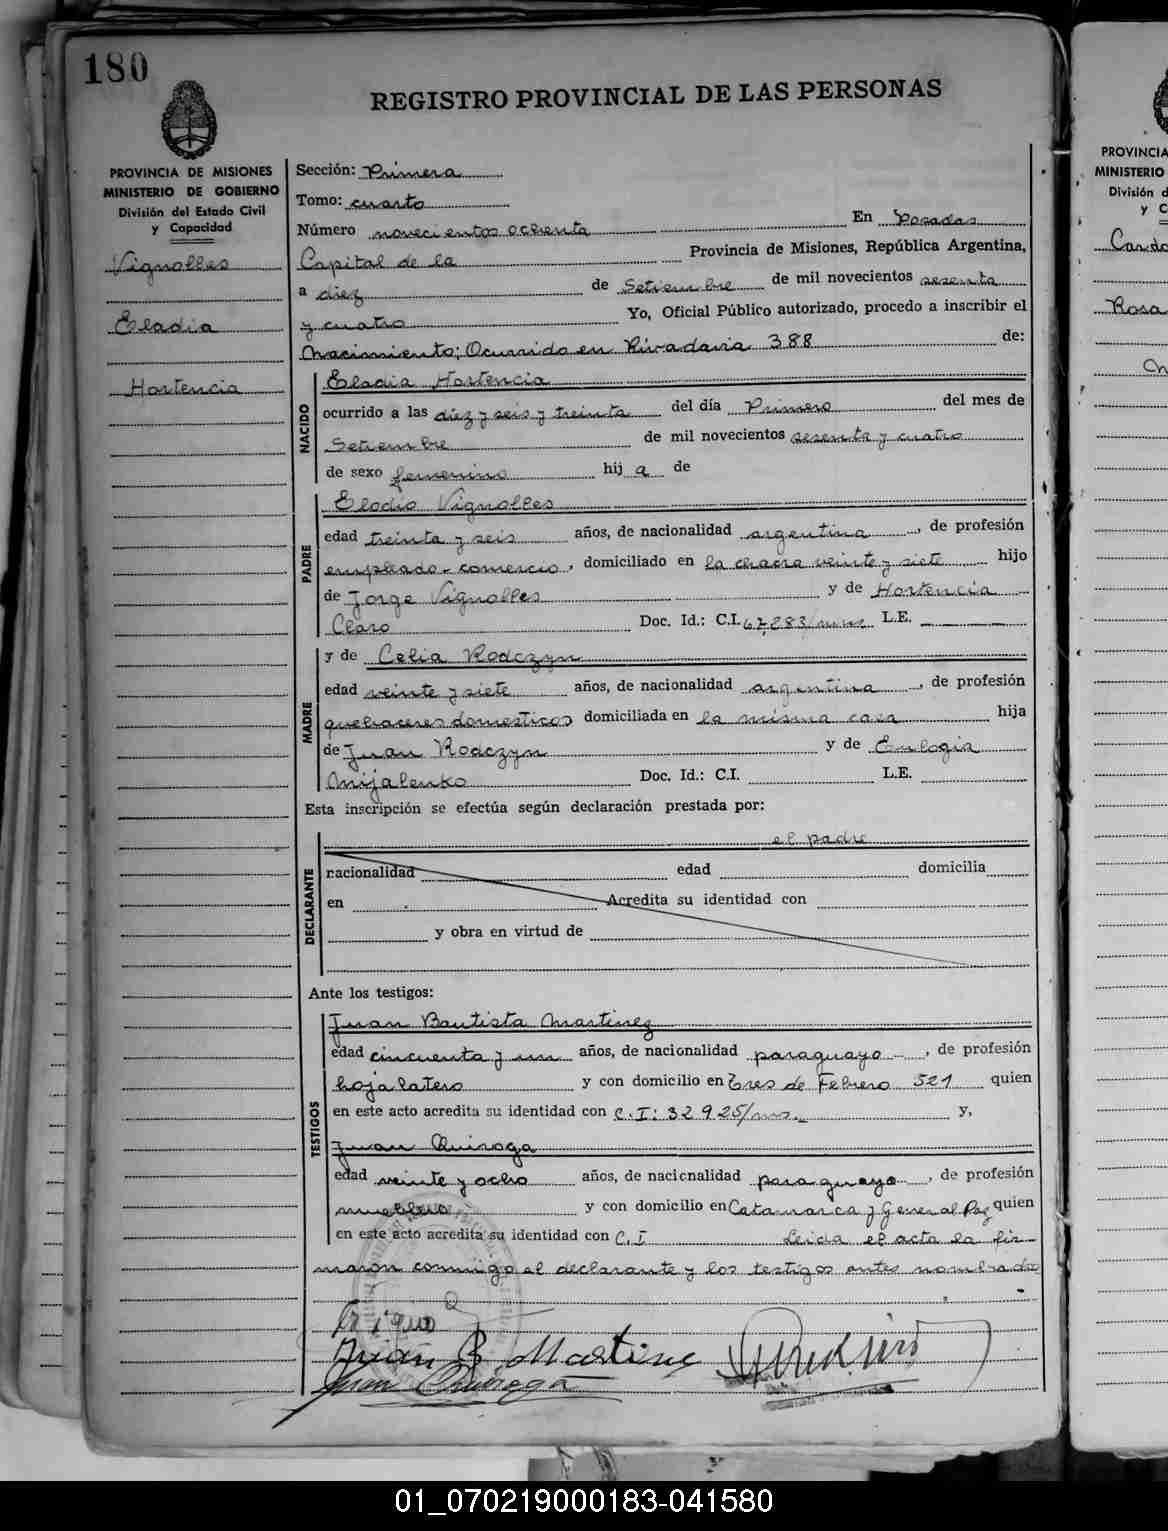 180
REGISTRO PROVINCIAL DE LAS PERSONAS
PROVINCIA DE MISIONES
MINISTERIO DE GOBIERNO
División del Estado Civil
y Capacidad
Vignolles
Eladia
Hortencia
Sección: Primera
Tomo: cuarto
Número novecientos ochenta En Posadas
Capital de la Provincia de Misiones, República Argentina,
a diez de Setiembre de mil novecientos sesenta
y cuatro Yo, Oficial Público autorizado, procedo a inscribir el
Nacimiento; Ocurrido en Rivadavia 388 de:
NACIDO
Eladia Hortencia
ocurrido a las diez y seis y treinta del día Primero del mes de
Setiembre de mil novecientos sesenta y cuatro
de sexo femenino hij a de
PADRE
Eladio Vignolles
edad treinta y seis años, de nacionalidad argentina, de profesión
empleado-comercio, domiciliado en la chacra veinte y siete hijo
de Jorge Vignolles y de Hortencia
Claro Doc. Id.: C.I. 67,283/mns L.E.
MADRE
y de Celia Rodczyn
edad veinte y siete años, de nacionalidad argentina, de profesión
quehaceres domesticos domiciliada en la misma casa hija
de Juan Rodczyn y de Eulogia
Mijalenko Doc. Id.: C.I. L.E.
Esta inscripción se efectúa según declaración prestada por:
DECLARANTE
el padre
nacionalidad edad domicilia
en Acredita su identidad con
y obra en virtud de
Ante los testigos:
TESTIGOS
Juan Bautista Martinez
edad cincuenta y un años, de nacionalidad paraguayo, de profesión
hojalatero y con domicilio en Tres de Febrero 521 quien
en este acto acredita su identidad con C.I: 32925/mns. y,
Juan Quiroga
edad veinte y ocho años, de nacionalidad paraguayo, de profesión
mueblero y con domicilio en Catamarca y General Paz quien
en este acto acredita su identidad con C.I Leida el acta la fir-
maron conmigo el declarante y los testigos antes nombrados
Juan B. Martinez
Juan Quiroga
PROVINCIA
MINISTERIO
División d
y C
Rosa
01_070219000183-041580